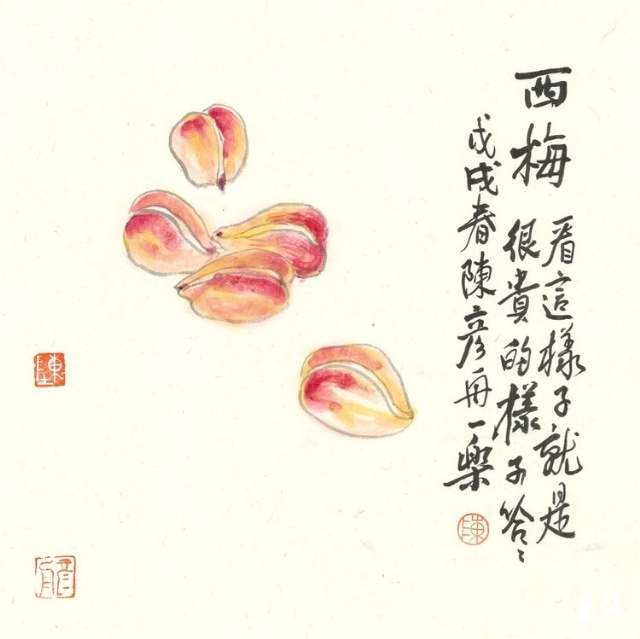 西梅
看這樣子就是
很貴的樣子
戊戌春陳彦舟一樂
陳